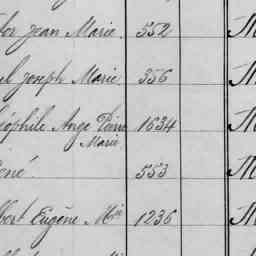 tor Jean Marie. 552 M
el Joseph Marie 356 M
éophile Ange Pierre 1634 M
Marie
ené 553 M
bert Eugène Mie 1236 M